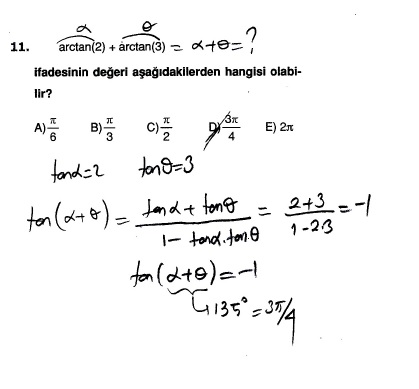 α θ
11. arctan(2) + arctan(3) = α+θ=?
ifadesinin değeri aşağıdakilerden hangisi olabi-
lir?
A) π/6 B) π/3 C) π/2 D) 3π/4 E) 2π
tanα=2 tanθ=3
tan(α+θ) = (tanα + tanθ)/(1 - tanα.tanθ) = (2+3)/(1-2.3) = -1
tan(α+θ) = -1
135° = 3π/4